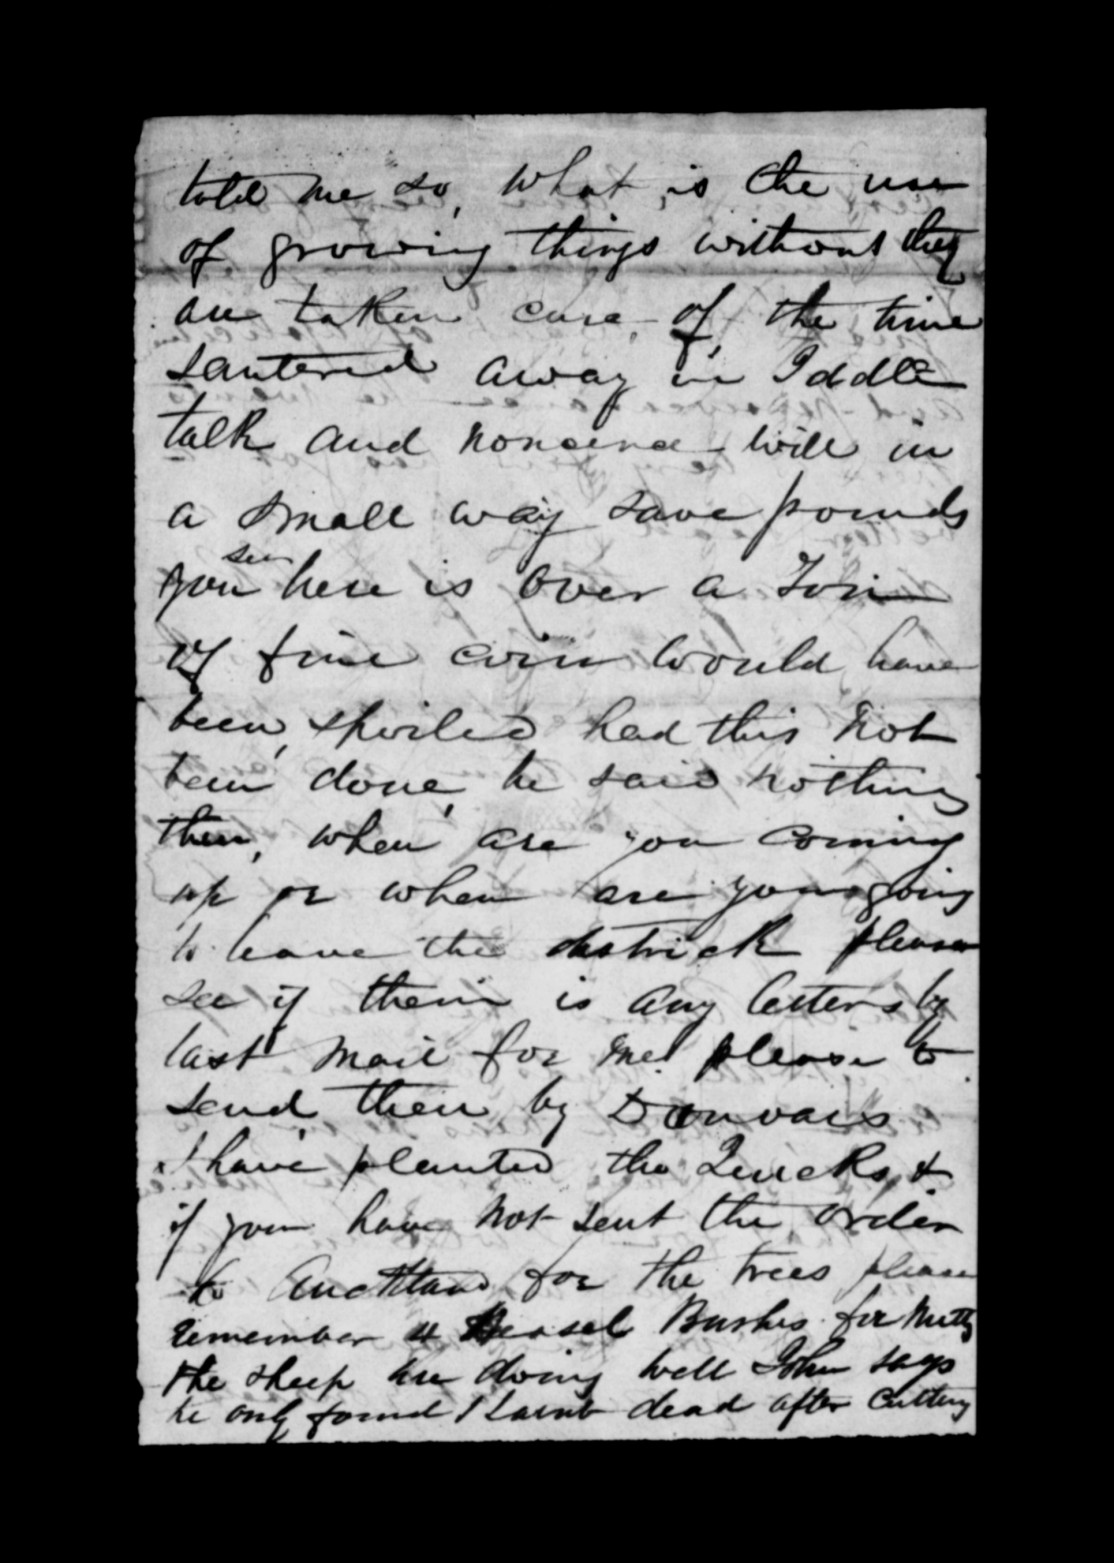 told me so, what is the use
of growing things without they
are taken care of, the time
santered away in Iddle
talk and nonsence will in
a small way save pounds
you see here is over a Ton
of fine corn would have
been spoiled had this not
been done, he said nothing
then, when are you coming
up or when are you going
to leave the districk please
see if their is any letters by
last mail for me please to
send them by
I have planted the Quicks &
if you have not sent the order
to Auckland for the trees please
remember 4 Heasel Bushes for Nutts
the sheep are doing well John says
he only found 1 Lamb dead after cutting